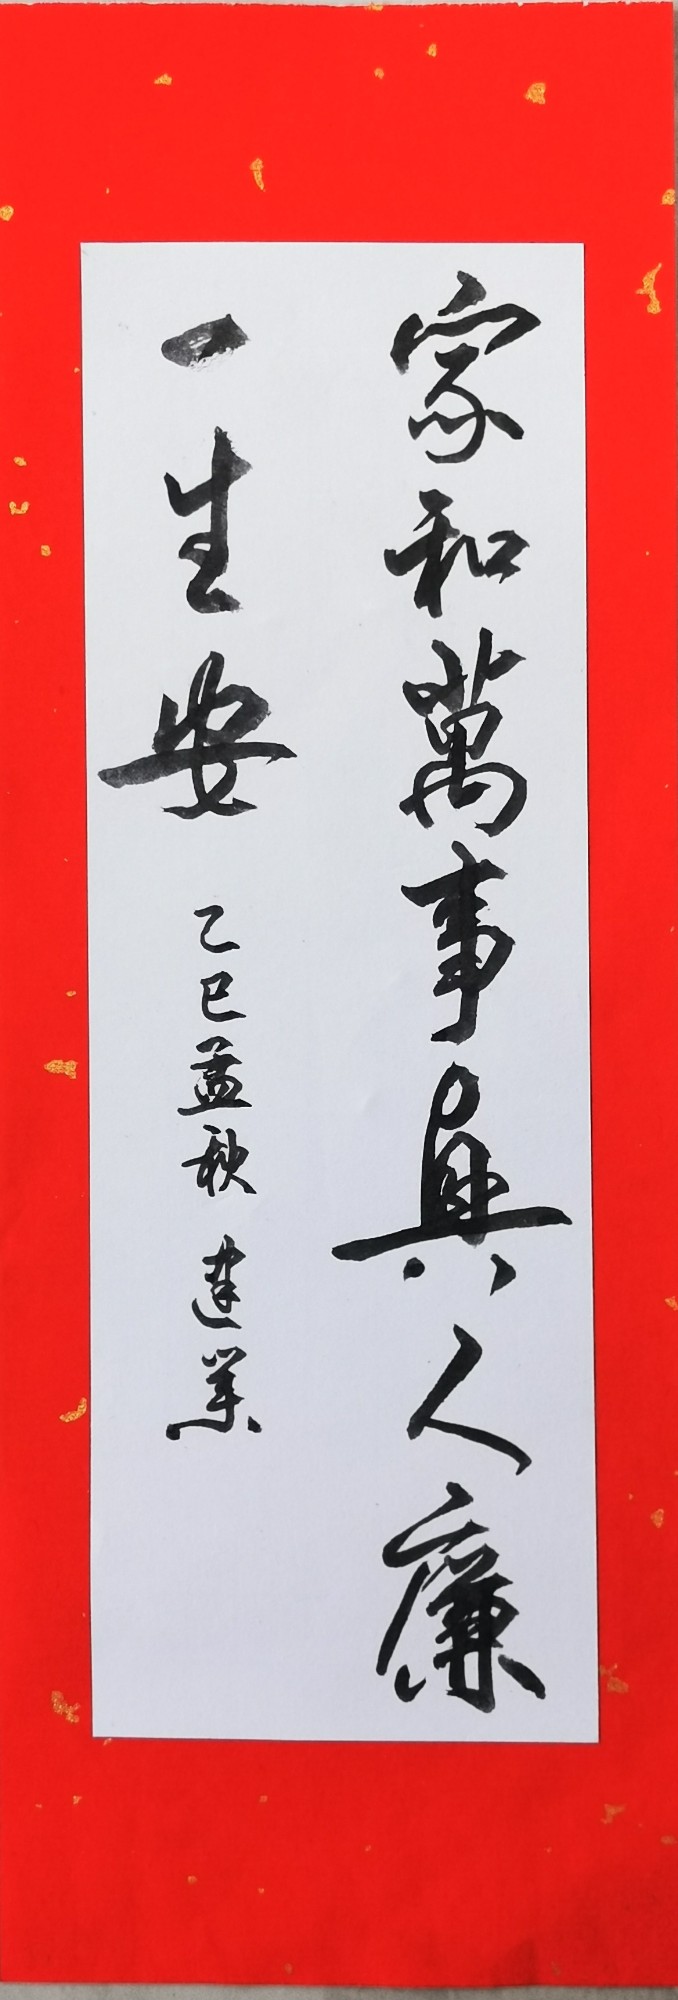 家和萬事興人廉
一生安
乙巳孟秋 建業